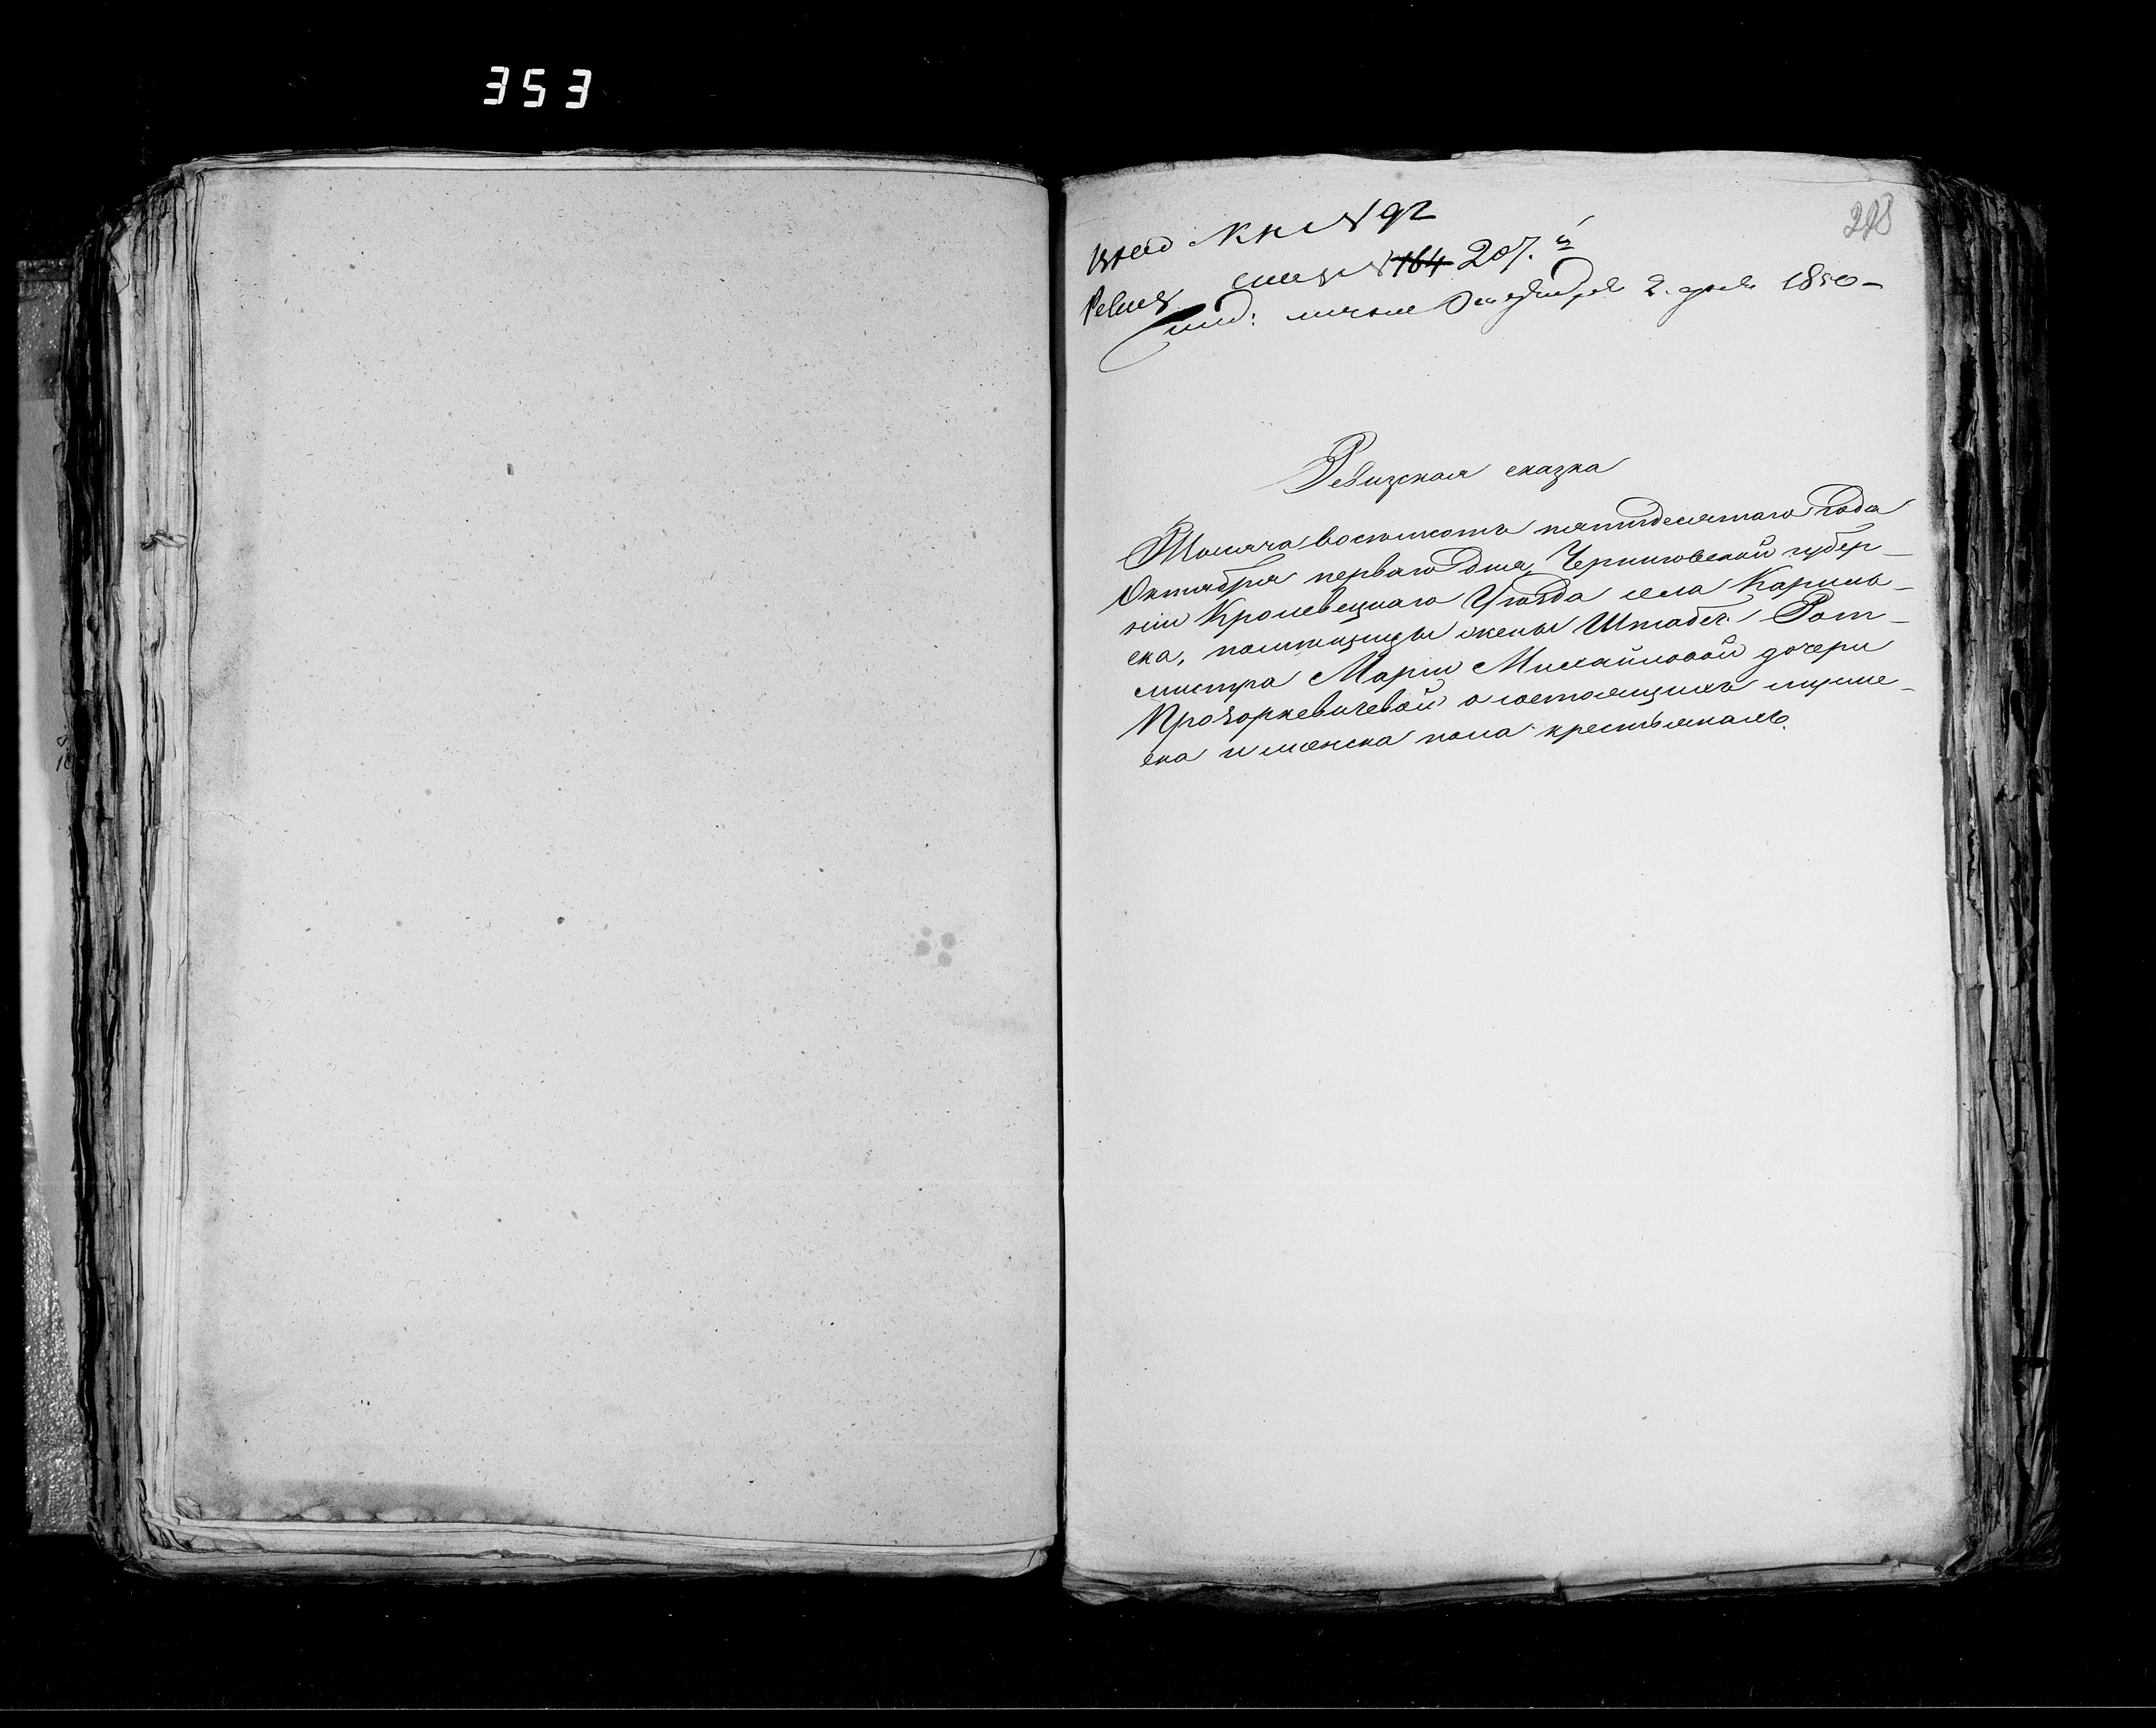 353
298
вход Кн № 92
Ревиз сказ № 164 207.й
личное Октября 2. дня 1850 –
Ревизская сказка
Тысяча восемьсотъ пятидесятаго года
Октября перваго дня, Черниговской губер-
ніи Кролевецкаго Уѣзда села Карыль-
ска, помѣщицы жены Штабсъ Рот-
мистра Маріи Михайловой дочери
Прохоркевичевой о состоящихъ мужес-
ка и женска пола крестьянахъ.